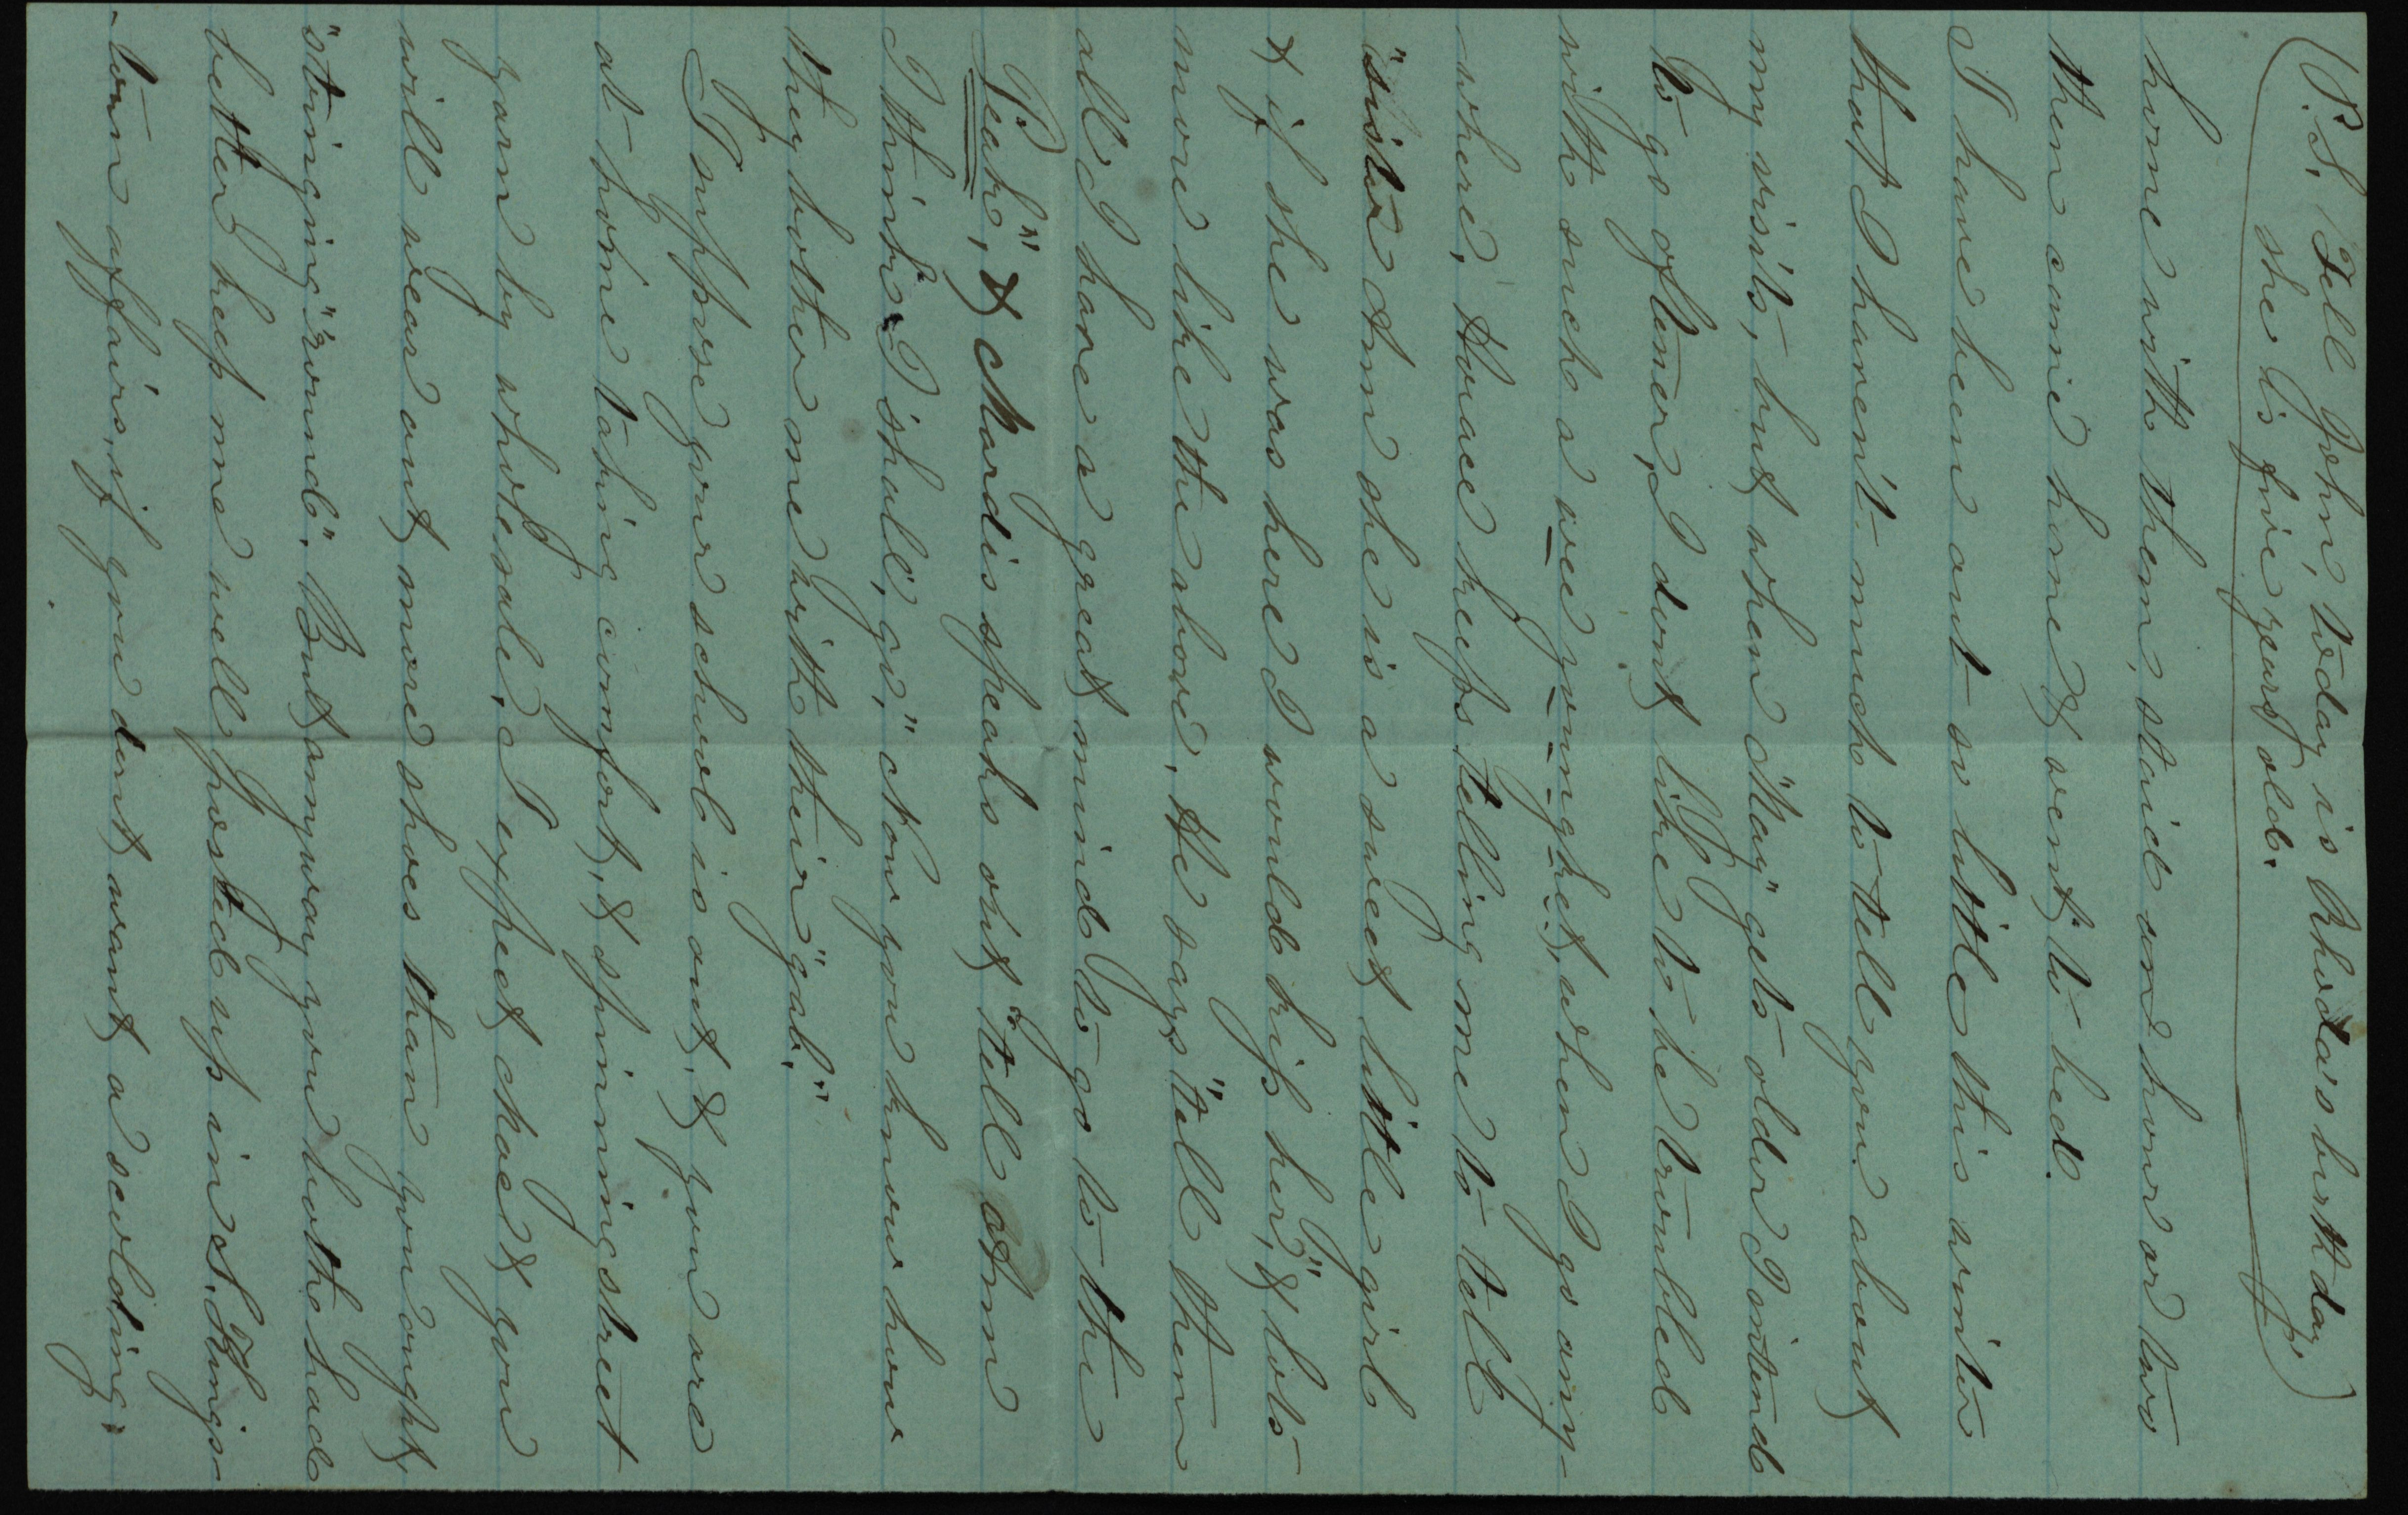 (P.S. Tell John, today is Rhoda's birthday
she is five years old.)
home with them, staid an hour or two
then came home & went to bed.
I have been out so little this winter
that I haven't much to tell you about
my visits, but when "May" gets older I intend
to go oftener, I dont like to be troubled
with such a wee youngket, when I go any-
where, Horace keeps telling me to tell
"sister Ann she is a sweet little girl
& if she was here I would kiss her," & lots
more like the above, He says "tell them
all I have a great mind to go to the
Peak," & Mardis speaks out "tell Ann
I think I shall, go," Now you know how
they bother me with their "gab."
I suppose your school is out, & you are
at home taking comfort, & spinning street
yarn by wholesale, I expect chae & you
will wear out more shoes than you ought,
"stringing round". But anyway you both had
better keep me well posted up in S. Kings-
-ton affairs, if you dont want a scolding.